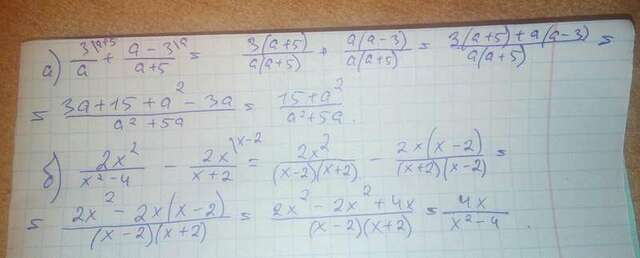 а) 3\a+5/a + a-3\a/a+5 = 3(a+5)/a(a+5) + a(a-3)/a(a+5) = 3(a+5)+a(a-3)/a(a+5) =
= 3a+15+a²-3a/a²+5a = 15+a²/a²+5a.
б) 2x²/x²-4 - 2x\x-2/x+2 = 2x²/(x-2)(x+2) - 2x(x-2)/(x+2)(x-2) =
= 2x²-2x(x-2)/(x-2)(x+2) = 2x²-2x²+4x/(x-2)(x+2) = 4x/x²-4.